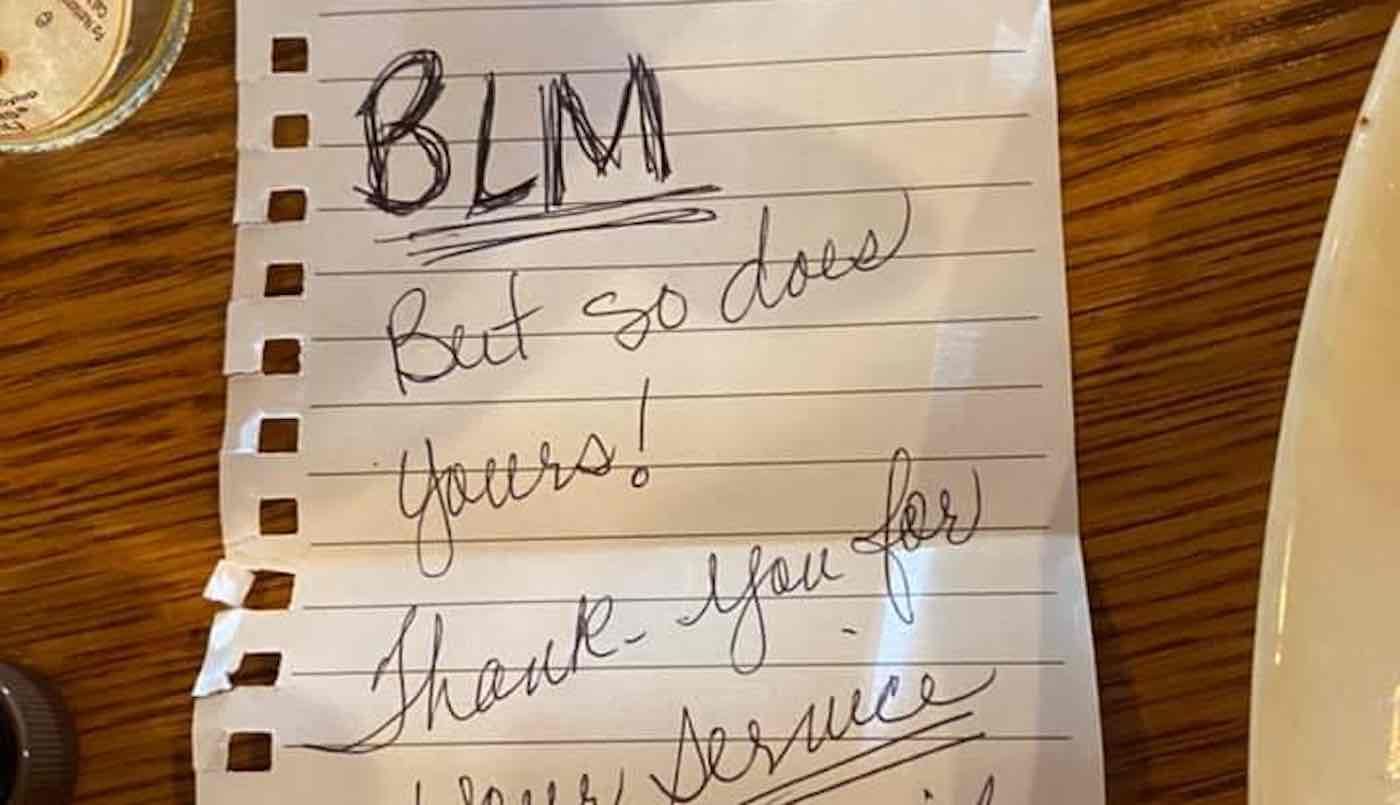 BLM
But so does
yours!
Thank-you for
your service